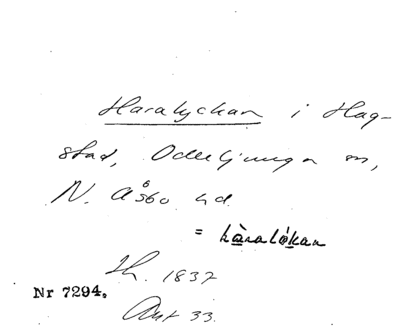 Haralyckan i Hag-
stad, Oderljunga sn,
N. Åsbo hd.
= hàralókan
Lh. 1837
Nr 7294.
Ant 33.